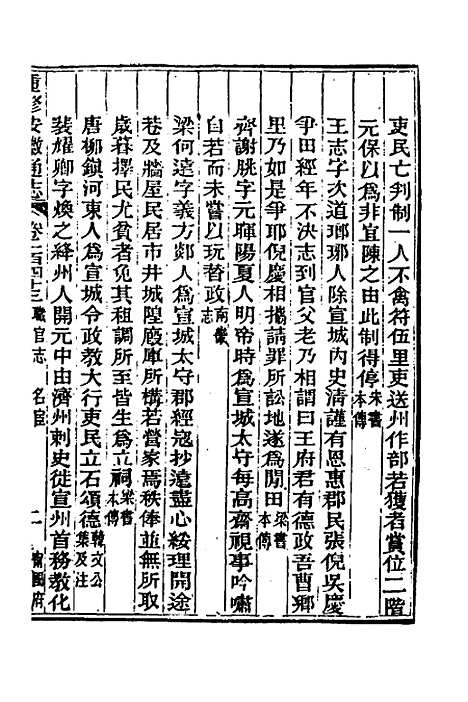 吏民亡叛制一人不禽符伍里吏送州作部若獲者賞位二階
元保以爲非宜陳之由此制得停宋書本傳
王志字次道瑯琊人除宣城內史清謹有恩惠郡民張倪吳慶
爭田經年不決志到官父老乃相謂曰王府君有德政吾曹鄉
里乃如是爭耶倪慶相攜請罪所訟地遂爲閒田梁書本傳
齊謝朓字元暉陽夏人明帝時爲宣城太守每高齋視事吟嘯
自若而未嘗以玩替政南畿志
梁何遠字義方郯人爲宣城太守郡經寇抄遠盡心綏理開途
巷及牆屋民居市井城隍廄庫所構若營家焉秩俸並無所取
歲暮擇民尤貧者免其租調所至皆生爲立祠梁書本傳
唐柳鎮河東人爲宣城令政教大行吏民立石頌德韓文公集及注
裴耀卿字煥之絳州人開元中由濟州刺史徙宣州首務敎化
重修安徽通志 卷一百四十三 職官志 名宦 二 甯國府